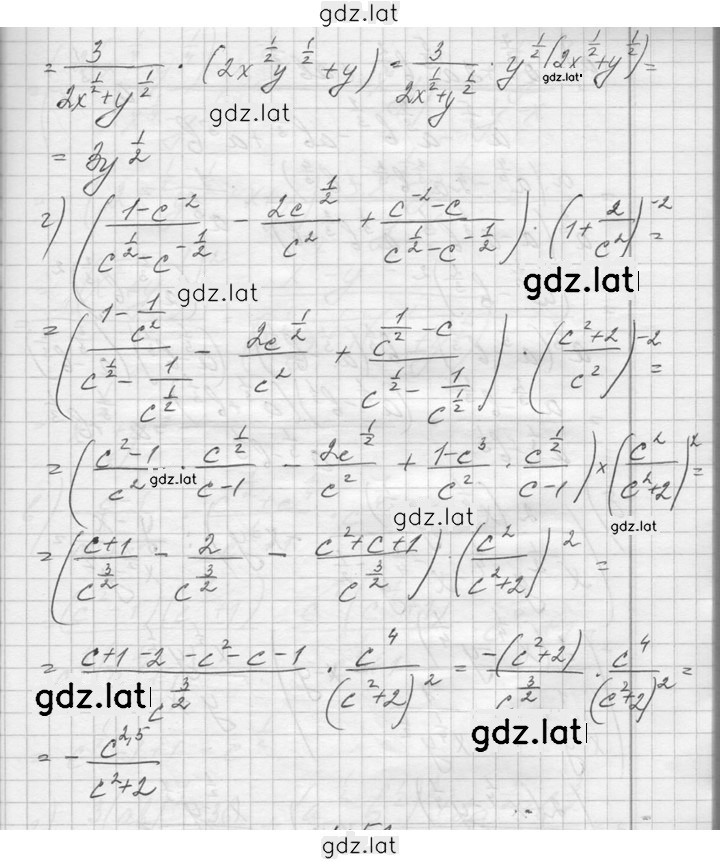 gdz.lat
= 3/(2x^(1/2)+y^(1/2)) · (2x^(1/2)y^(1/2)+y) = 3/(2x^(1/2)+y^(1/2)) · y^(1/2)(2x^(1/2)+y^(1/2)) =
gdz.lat
gdz.lat
= 3y^(1/2)
г) ((1-c^(-2))/(c^(1/2)-c^(-1/2)) - 2c^(1/2)/c^2 + (c^(-2)-c)/(c^(1/2)-c^(-1/2))) · (1+2/c^2)^(-2) =
gdz.lat
gdz.lat
= ((1-1/c^2)/(c^(1/2)-1/c^(1/2)) - 2c^(1/2)/c^2 + (1/c^2-c)/(c^(1/2)-1/c^(1/2))) · ((c^2+2)/c^2)^(-2) =
= ((c^2-1)/c^2 · c^(1/2)/(c-1) - 2c^(1/2)/c^2 + (1-c^3)/c^2 · c^(1/2)/(c-1)) × (c^2/(c^2+2))^2 =
gdz.lat
gdz.lat
gdz.lat
= ((c+1)/c^(3/2) - 2/c^(3/2) - (c^2+c+1)/c^(3/2)) · (c^2/(c^2+2))^2 =
= (c+1-2-c^2-c-1)/c^(3/2) · c^4/(c^2+2)^2 = -(c^2+2)/c^(3/2) · c^4/(c^2+2)^2 =
gdz.lat
gdz.lat
gdz.lat
= - c^(2,5)/(c^2+2)
gdz.lat